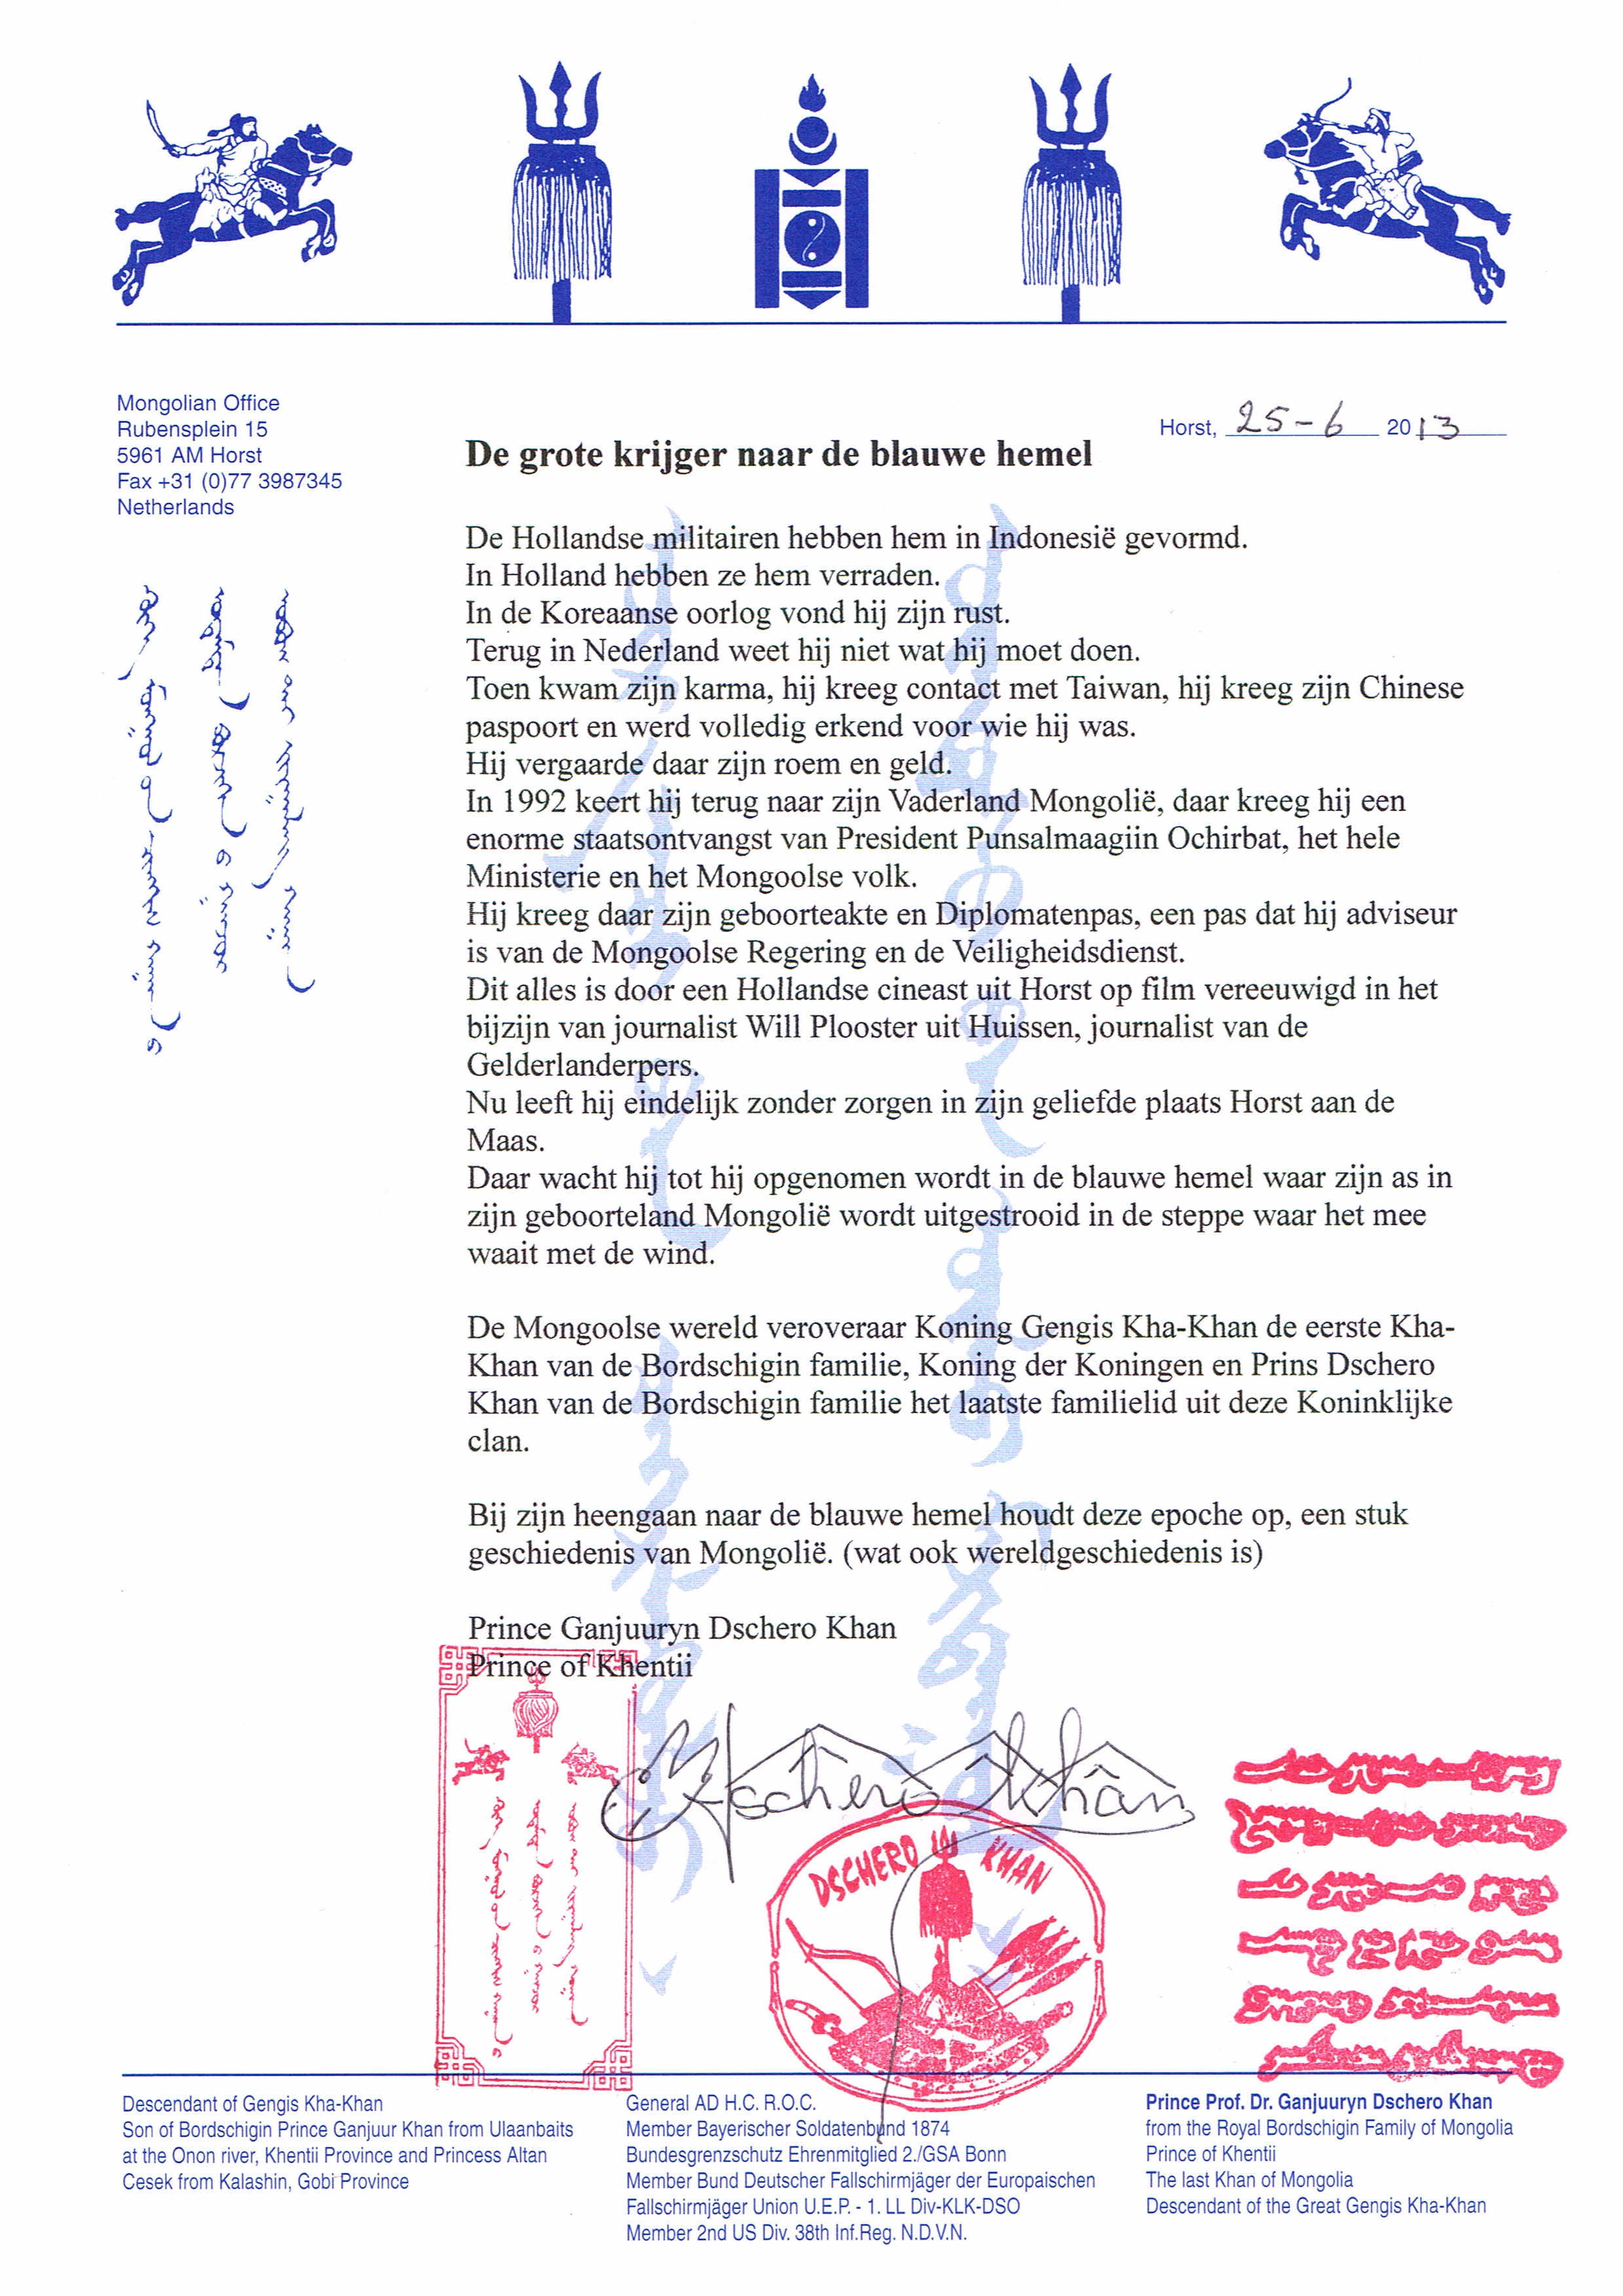 Mongolian Office
Rubensplein 15
5961 AM Horst
Fax +31 (0)77 3987345
Netherlands
Horst, 25-6 2013
De grote krijger naar de blauwe hemel
De Hollandse militairen hebben hem in Indonesië gevormd.
In Holland hebben ze hem verraden.
In de Koreaanse oorlog vond hij zijn rust.
Terug in Nederland weet hij niet wat hij moet doen.
Toen kwam zijn karma, hij kreeg contact met Taiwan, hij kreeg zijn Chinese
paspoort en werd volledig erkend voor wie hij was.
Hij vergaarde daar zijn roem en geld.
In 1992 keert hij terug naar zijn Vaderland Mongolië, daar kreeg hij een
enorme staatsontvangst van President Punsalmaagiin Ochirbat, het hele
Ministerie en het Mongoolse volk.
Hij kreeg daar zijn geboorteakte en Diplomatenpas, een pas dat hij adviseur
is van de Mongoolse Regering en de Veiligheidsdienst.
Dit alles is door een Hollandse cineast uit Horst op film vereeuwigd in het
bijzijn van journalist Will Plooster uit Huissen, journalist van de
Gelderlanderpers.
Nu leeft hij eindelijk zonder zorgen in zijn geliefde plaats Horst aan de
Maas.
Daar wacht hij tot hij opgenomen wordt in de blauwe hemel waar zijn as in
zijn geboorteland Mongolië wordt uitgestrooid in de steppe waar het mee
waait met de wind.
De Mongoolse wereld veroveraar Koning Gengis Kha-Khan de eerste Kha-
Khan van de Bordschigin familie, Koning der Koningen en Prins Dschero
Khan van de Bordschigin familie het laatste familielid uit deze Koninklijke
clan.
Bij zijn heengaan naar de blauwe hemel houdt deze epoche op, een stuk
geschiedenis van Mongolië. (wat ook wereldgeschiedenis is)
Prince Ganjuuryn Dschero Khan
Prince of Khentii
Dschero Khan
DSCHERO KHAN
Descendant of Gengis Kha-Khan
Son of Bordschigin Prince Ganjuur Khan from Ulaanbaits
at the Onon river, Khentii Province and Princess Altan
Cesek from Kalashin, Gobi Province
General AD H.C. R.O.C.
Member Bayerischer Soldatenbund 1874
Bundesgrenzschutz Ehrenmitglied 2./GSA Bonn
Member Bund Deutscher Fallschirmjäger der Europaischen
Fallschirmjäger Union U.E.P. - 1. LL Div-KLK-DSO
Member 2nd US Div. 38th Inf.Reg. N.D.V.N.
Prince Prof. Dr. Ganjuuryn Dschero Khan
from the Royal Bordschigin Family of Mongolia
Prince of Khentii
The last Khan of Mongolia
Descendant of the Great Gengis Kha-Khan